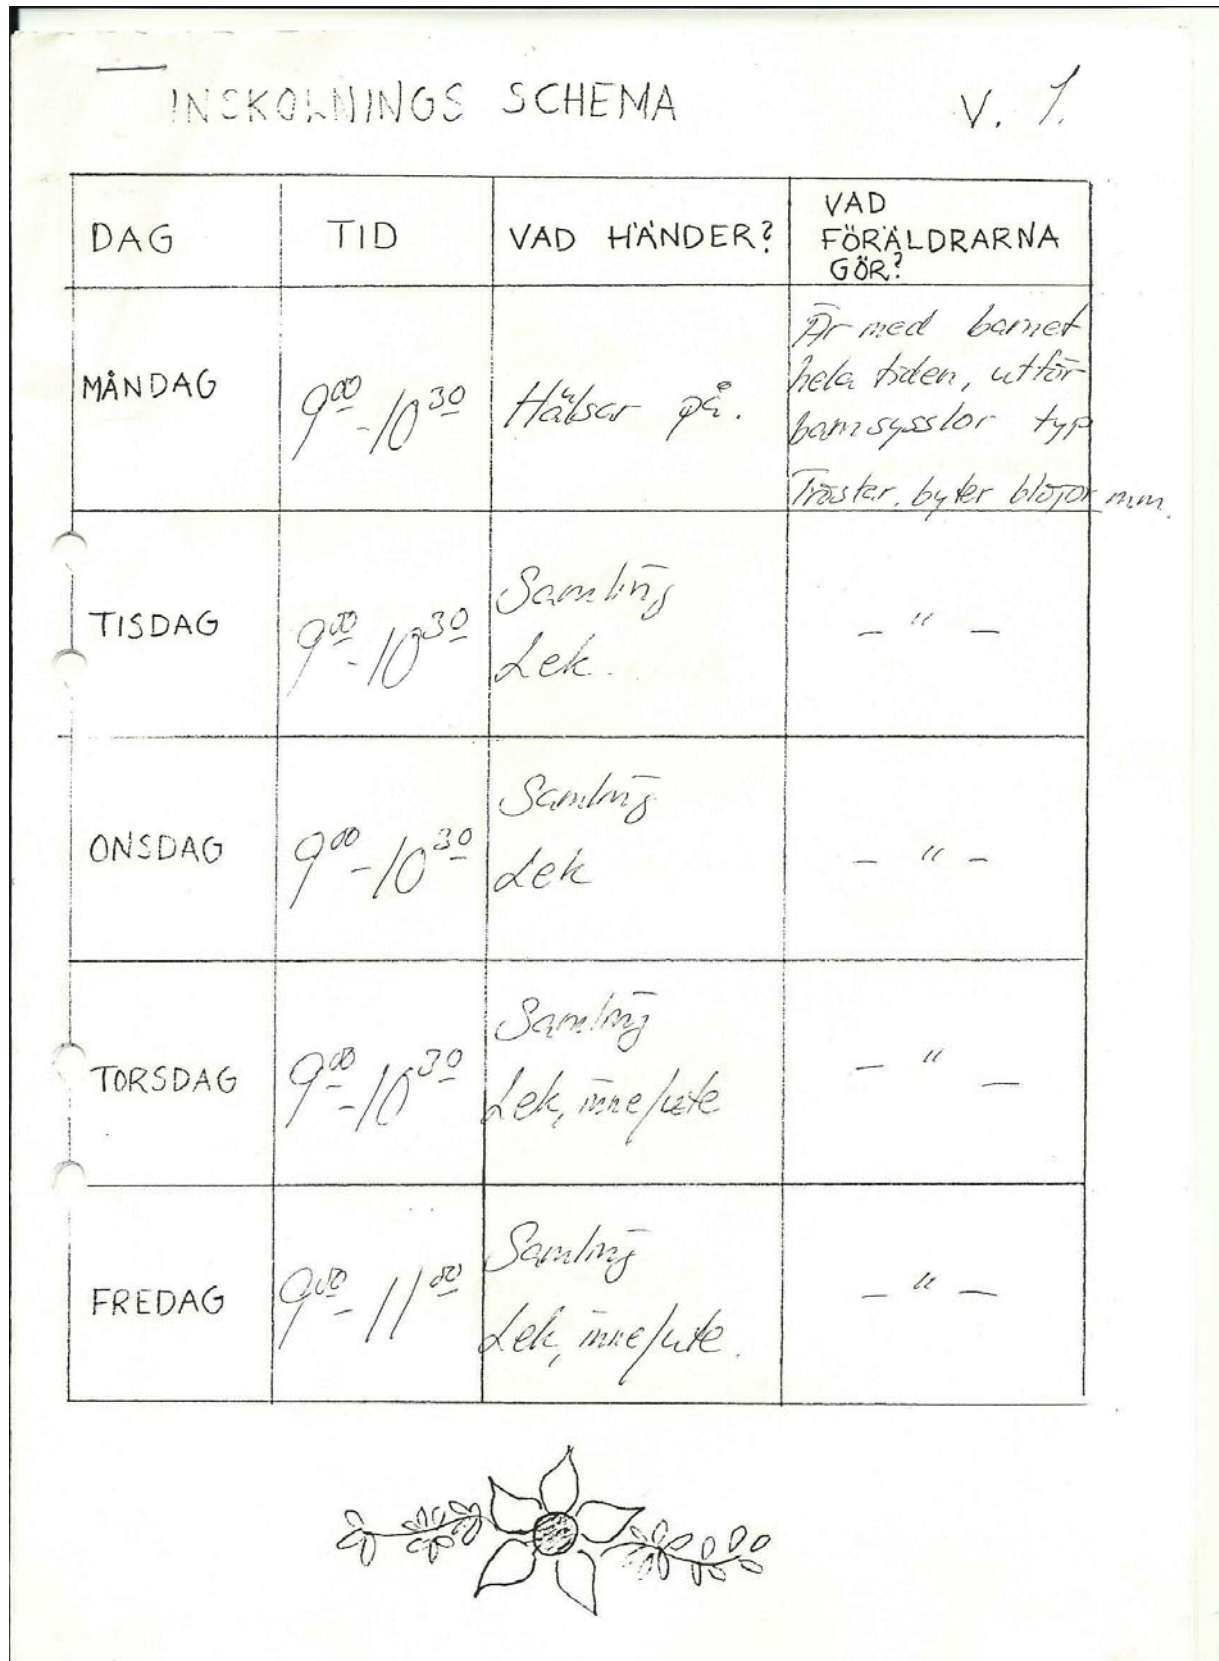 INSKOLNINGS SCHEMA V. 1.
DAG TID VAD HÄNDER? VAD
FÖRÄLDRARNA
GÖR?
MÅNDAG 9⁰⁰-10³⁰ Hälsar på. Är med barnet
hela tiden, utför
barnsysslor typ
Tröstar, byter blöjor mm.
TISDAG 9⁰⁰-10³⁰ Samling
Lek. – " –
ONSDAG 9⁰⁰-10³⁰ Samling
Lek – " –
TORSDAG 9⁰⁰-10³⁰ Samling
Lek, inne/ute – " –
FREDAG 9⁰⁰-11⁰⁰ Samling
Lek, inne/ute. – " –